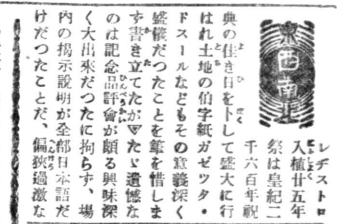 東西南北
レヂストロ
入植廿五年
祭は皇紀二
千六百年祝
典の佳き日を卜して盛大に行
はれ土地の伯字紙ガゼッタ・
ドスールなどもその意義深く
盛儀だつたことを筆を惜しま
ず書き立てたが▼たゞ遺憾な
のは記念品評會が頗る興味深
く大出來だつたに拘らず、場
內の揭示說明が全部日本語だ
けだつたことだ、偏狹過激な